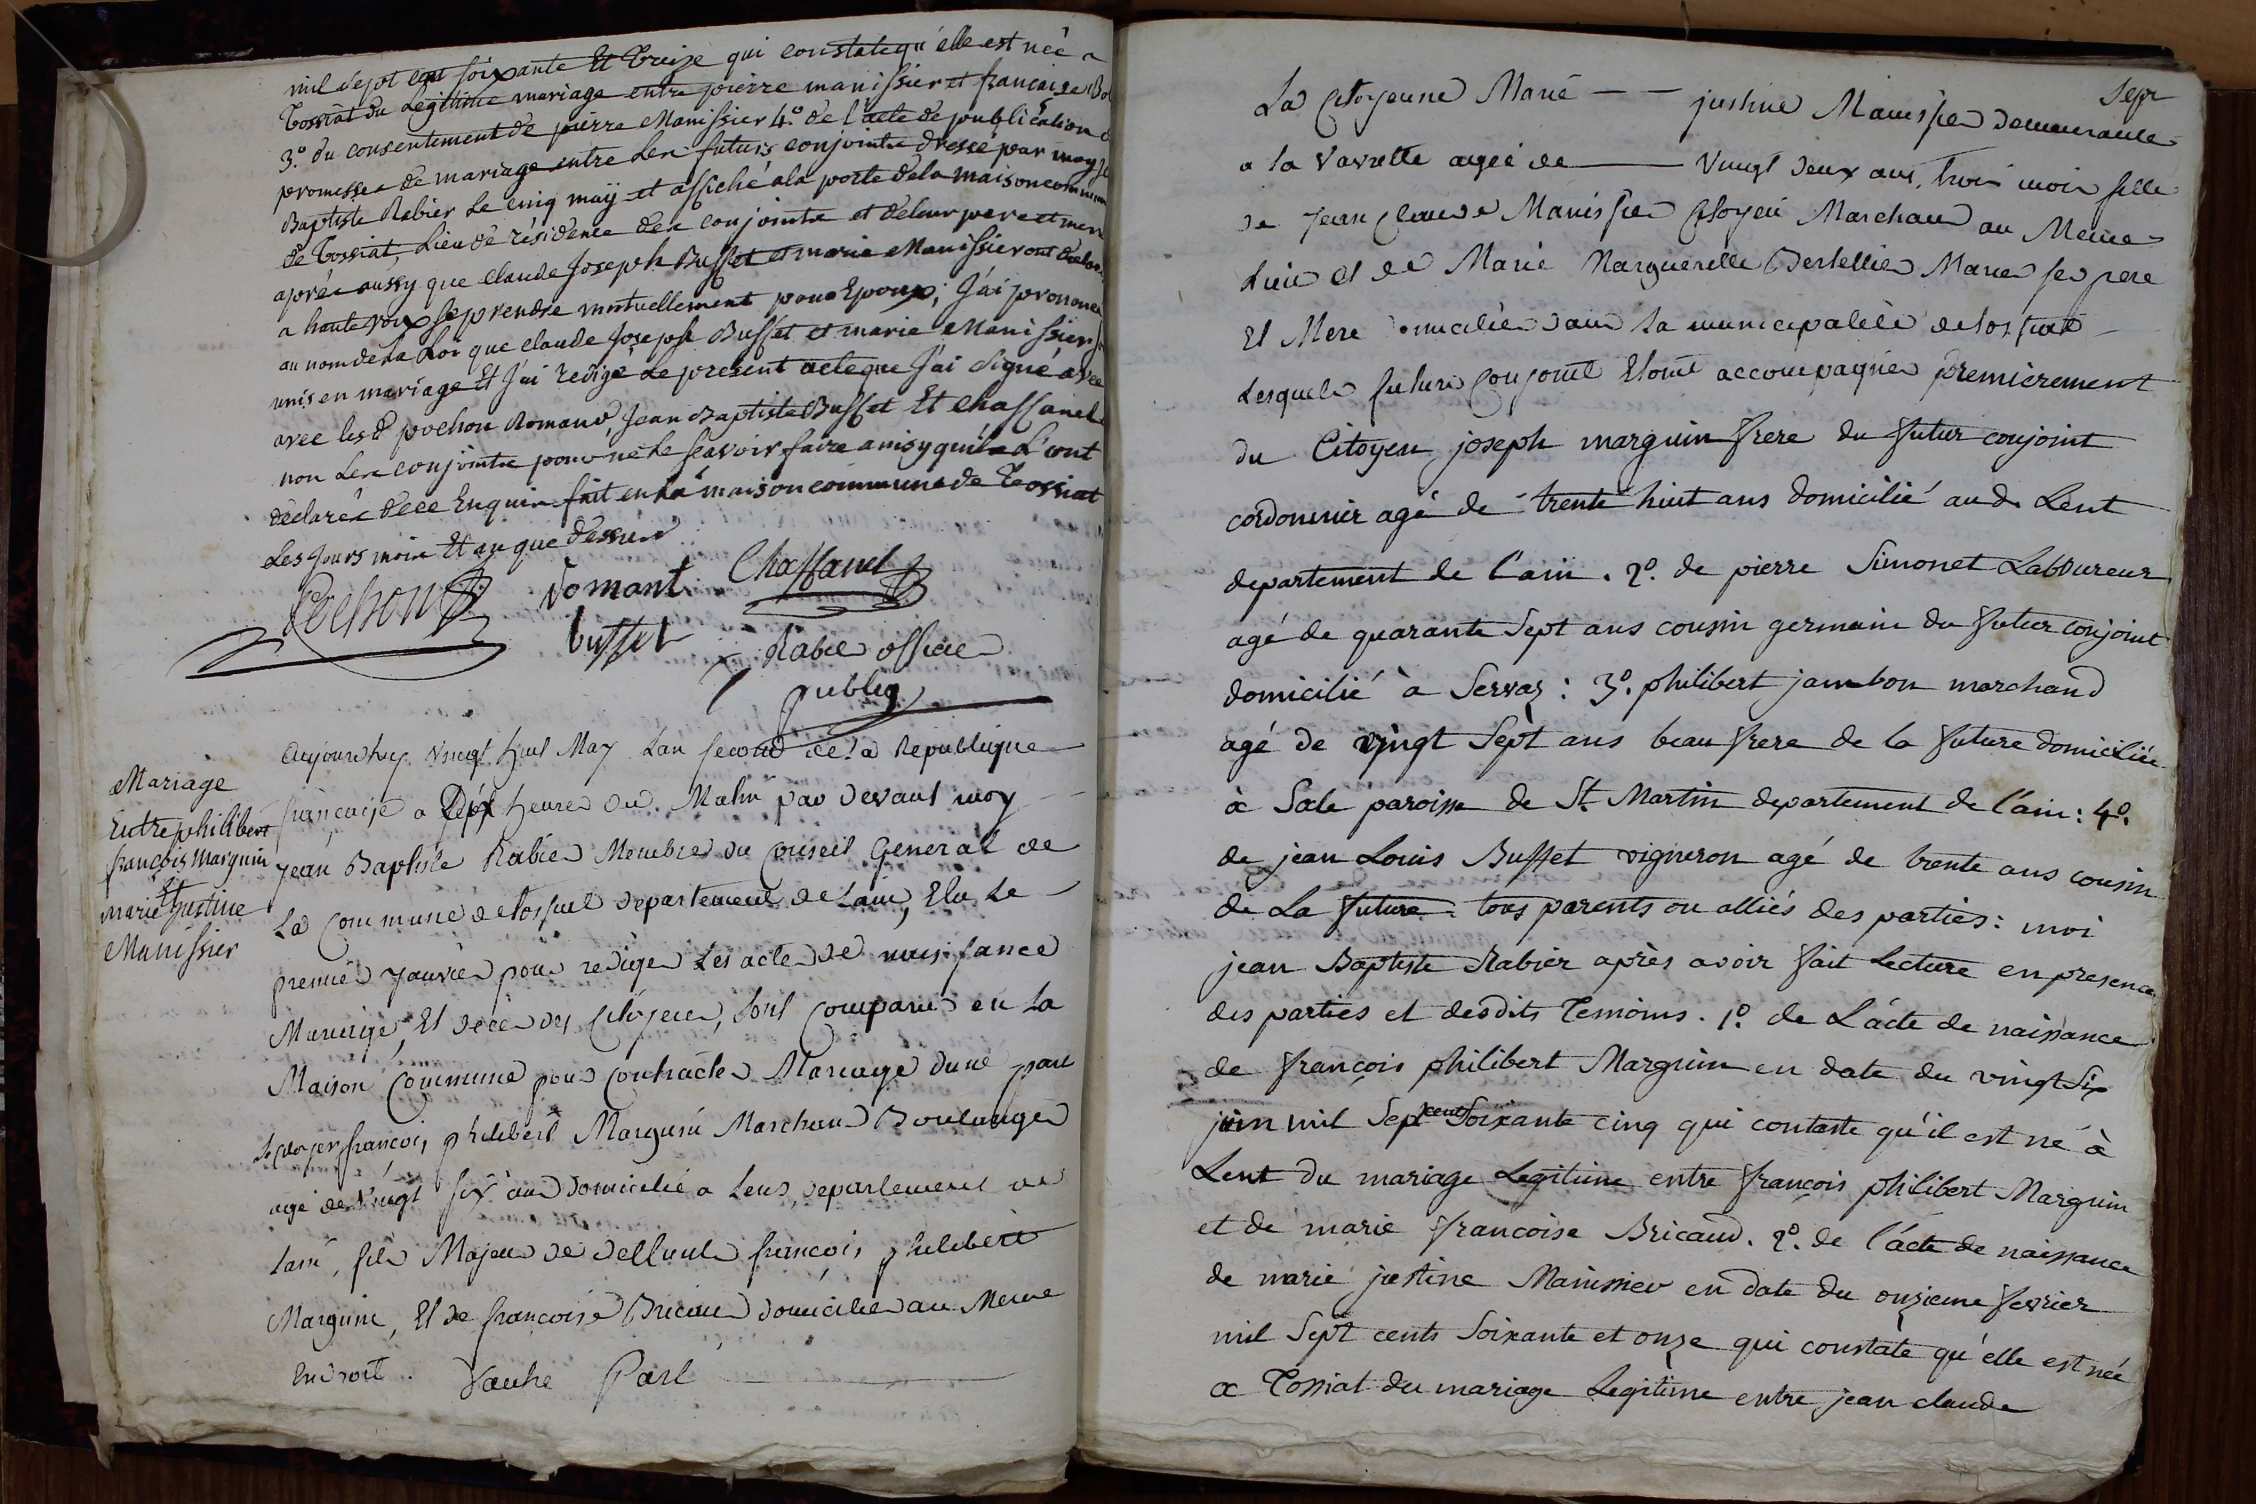 mil sept cent soixante Et treize qui constate qu'elle est née a
tossiat du Legitime mariage entre pierre manissier et francoise
3.º du consentement de pierre Manissier 4.º de l'acte de publication
promesses de mariage entre Les futurs conjoints dressé par moy
Baptiste Rabier Le cinq maÿ et affiché a la porte de la maison commune
de tossiat, Lieu de résidence des conjoints et de leur pere et mere
après aussy que claude Joseph Buffet et marie Manissier ont
a haute voix se prendre mutuellement pour Epoux; J'ai prononcé
au nom de la Loi que claude Joseph Buffet et marie Manissier
unis en mariage Et J'ai redigé Le present acte que J'ai signé avec
avec les d pochon Romand, Jean Baptiste Buffet Et Chassanel
non Les conjoints pour ne le sçavoir faire ainsy qu'ils L'ont
déclarés de ce Enquis fait en la maison commune de Tossiat
Les Jours mois Et an que dessus
Pochon Romant Chassanel
buffet Rabier officier
publiq
Mariage
Entre philibert
françois Marguin
Et
marie Justine
Manissier
aujourdhuy vingt huit May Lan second de la Republique
françaije a heures du Matin par devant moy
Jean Baptiste Rabier Membre du Conseil General de
La Commune de tossiat departement de Lain, Elu Le
premier Janvier pour rediger Les actes de naissance
Mariage Et deces des Citoyens, sont Comparus en La
Maison Commune pour Contracter Mariage dune part
françois philibert Marguin Marchand Boulanger
agé de vingt six ans domicilié a Lens, departement de
Lain, fils Majeur de deffunt françois philibert
Marguin, Et de françoise Bricaud domiciliés au Meme
Endroit. Dautre Part
Sept
La Citoyenne Marie — — justine Manissier demeurante
a la Vavrette agée de —— Vingt deux ans, trois mois fille
de Jean Claude Manissier Citoyen Marchand au Meme
Lieu Et de Marie Marguerite Bertellier Maries ses pere
Et Mere domiciliés dans la municipalité de tossiat
Lesquels futurs Conjoint Etoint accompagnés premièrement
du Citoyen joseph marguin frere du futur conjoint
cordonnier agé de trente huit ans domicilié aud. Lent
departement de l'ain. 2º. de pierre Simonet Laboureur
agé de quarante Sept ans cousin germain du futur conjoint
domicilié à Servas: 3º. philibert jambon marchand
agé de vingt Sept ans beau frere de la future domicilié
à Sale paroisse de St Martin departement de l'ain: 4º.
de jean Louis Buffet vigneron agé de trente ans cousin
de La future. tous parents ou alliés des parties: moi
jean Baptiste Rabier après avoir fait Lecture en presence
des parties et desdits Temoins. 1º. de L'acte de naissance
de françois philibert Marguin en date du vingt Six
juin mil Sept cent Soixante cinq qui contaste qu'il est né à
Lent du mariage Legitime entre françois philibert Marguin
et de marie françoise Bricaud. 2º. de l'acte de naissance
de marie justine Manissier en date du onzieme fevrier
mil Sept cents Soixante et onze qui constate qu'elle est née
a Tossiat du mariage Legitime entre jean claude